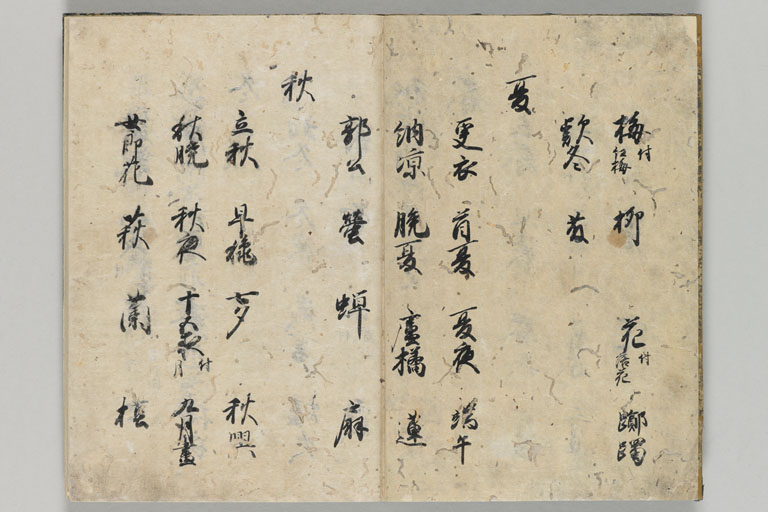 梅付紅梅 柳 花付落花 躑躅
款冬 藤
夏
更衣 首夏 夏夜 端午
納凉 晩夏 盧橘 蓮
郭公 螢 蝉 扇
秋
立秋 早穐 七夕 秋興
秋晩 秋夜 十五夜付月 九月盡
女郎花 萩 蘭 槿